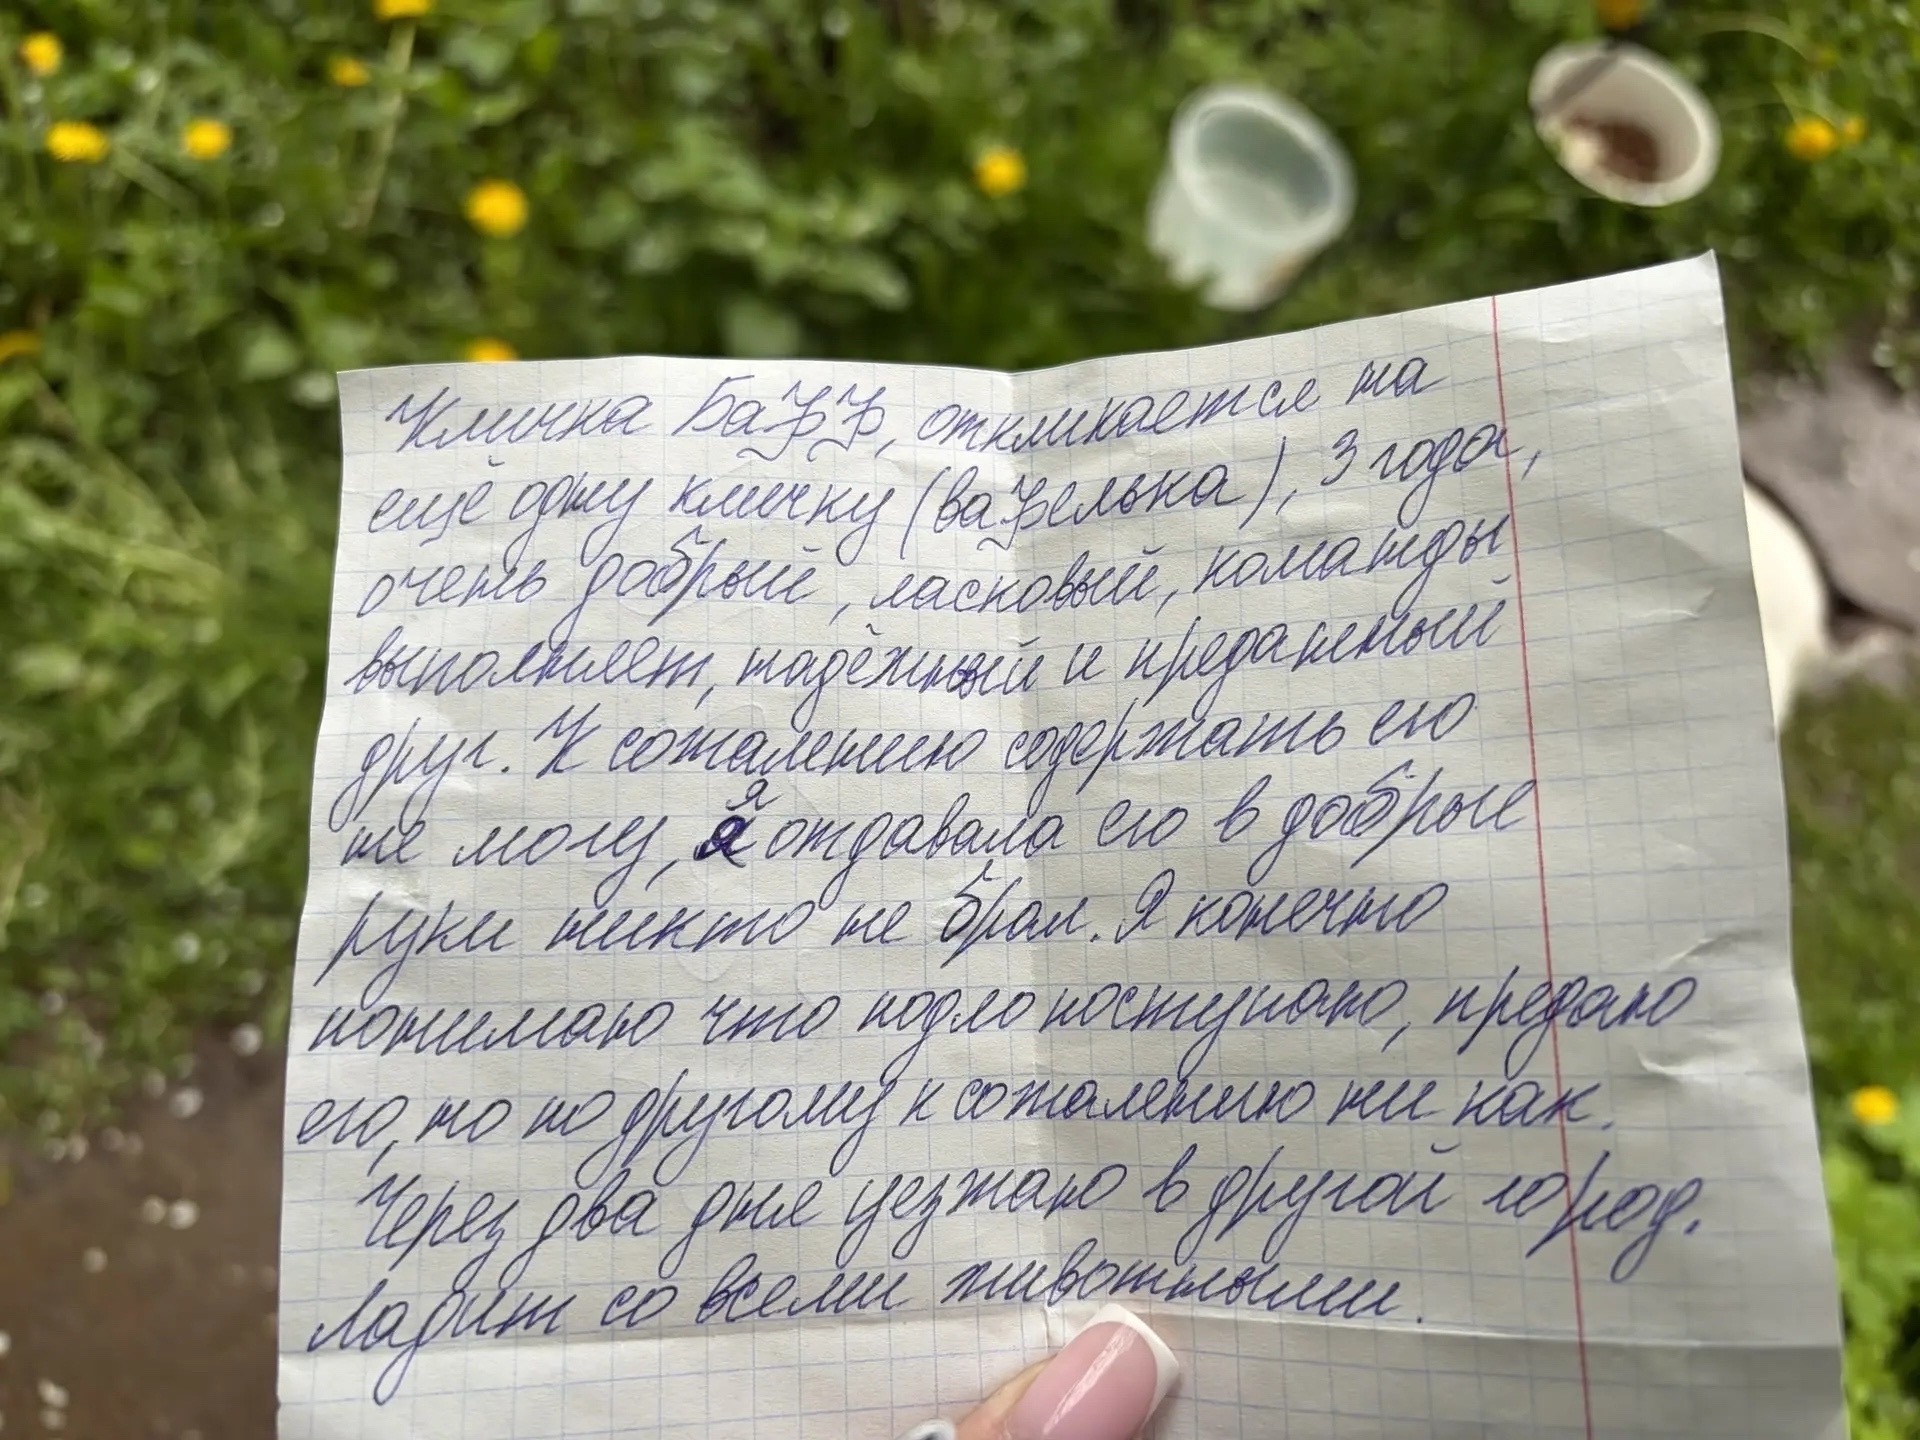 Кличка Баффи, откликается на
ещё одну кличку (вафелька), 3 года,
очень добрый, ласковый, команды
выполняет, надёжный и преданный
друг. К сожалению содержать его
не могу, я отдавала его в добрые
руки никто не брал. Я конечно
понимаю что подло поступаю, предаю
его, но по другому к сожалению ни как.
Через два дня уезжаю в другой город.
Ладит со всеми животными.